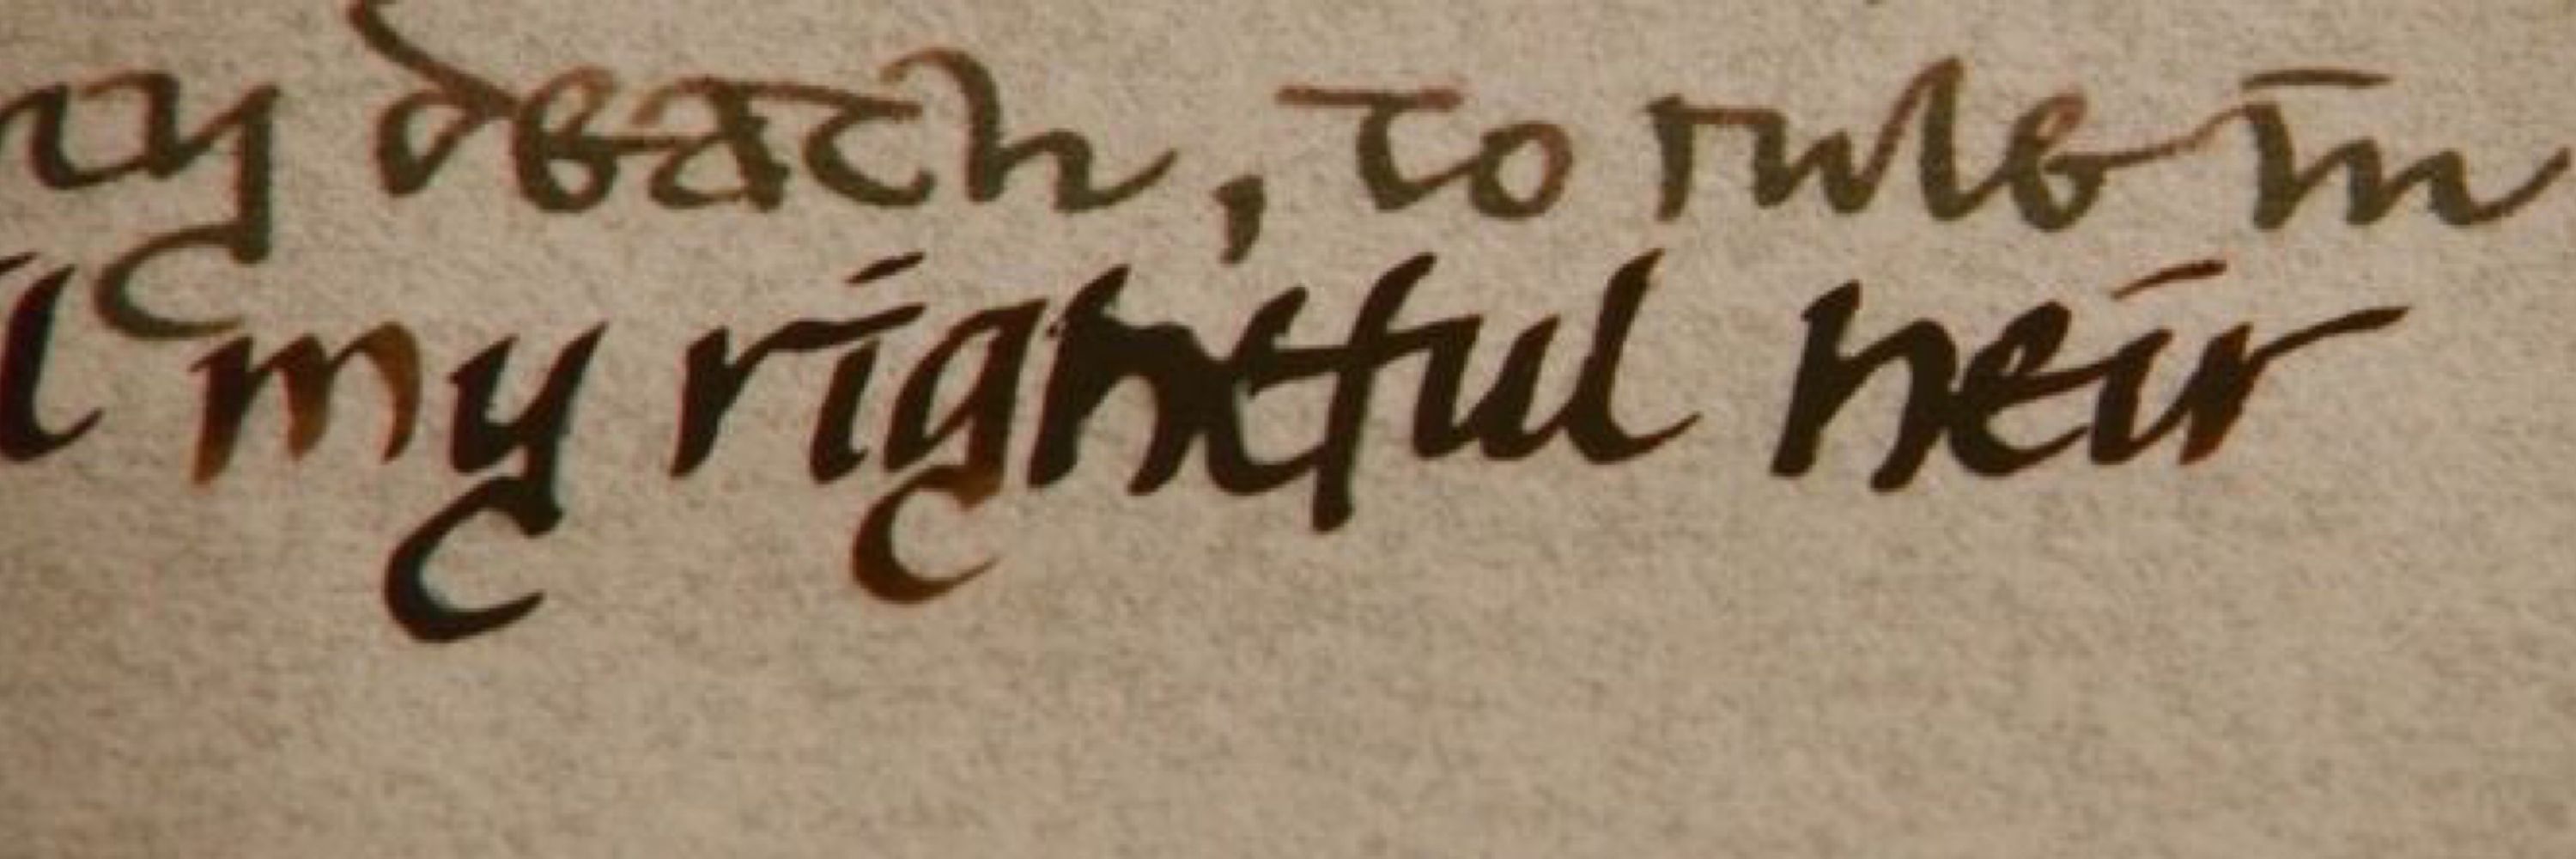 my death, to rule in
l my rightful heir